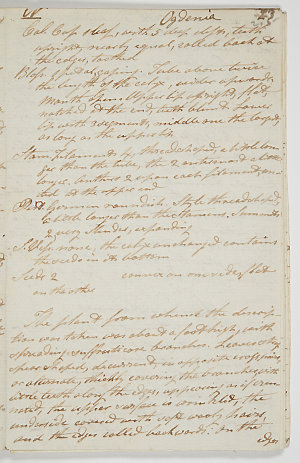 W. Ogdenia 23
Cal. Cup 1 leaf, with 5 deep clefts, teeth
upright, nearly equal, rolled back at
the edges, toothed
Bloss. 1 petal, gaping. Tube above twice
the length of the calyx, wider upwards,
Mouth open. Upper lip upright, flat,
notched at the end, with blunt. Lower
lip with 3 segments, middle one the longest,
as long as the upper lip
Stam. Filaments 4, threadshaped, a little lon-
ger than the tube, the 2 outermost a little
longer. Anthers 2 upon each filament,
at the upper end
Pist. Germen roundish. Style threadshaped,
a little longer than the stamens. Summits
2 very slender, expanding
S. Vess. none, the calyx unchanged contains
the seeds in its bottom
Seeds 2 convex on one side, flat
on the other
The plant from whence the descrip-
tion was taken was about a foot high, with
spreading suffruticose branches. Leaves
spear shaped, decurrent, in opposite
or alternate, thickly covering the branches with
teeth along the edges, appearing as if
the upper surface is smooth, the
underside covered with soft wooly hairs,
and the edges rolled backwards. On the
edges